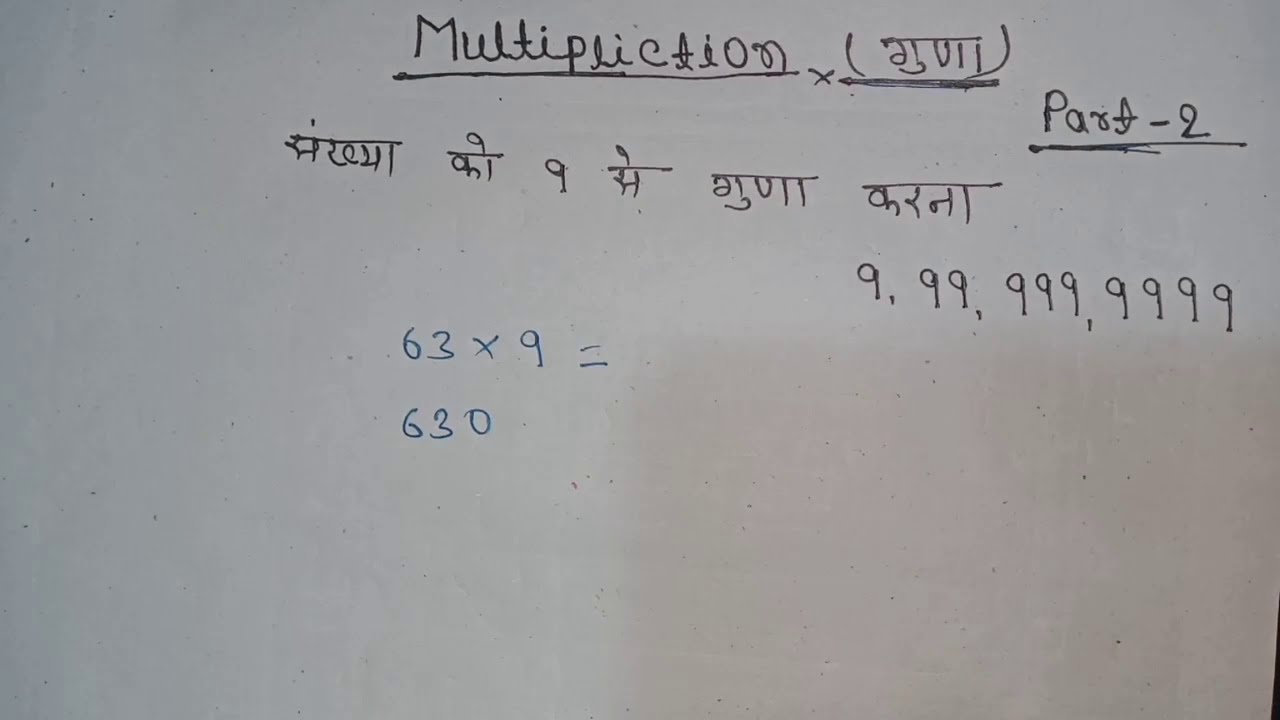 Multipliction × (गुणा)
Part-2
संख्या को 9 से गुणा करना
9, 99, 999, 9999
63 × 9 =
630